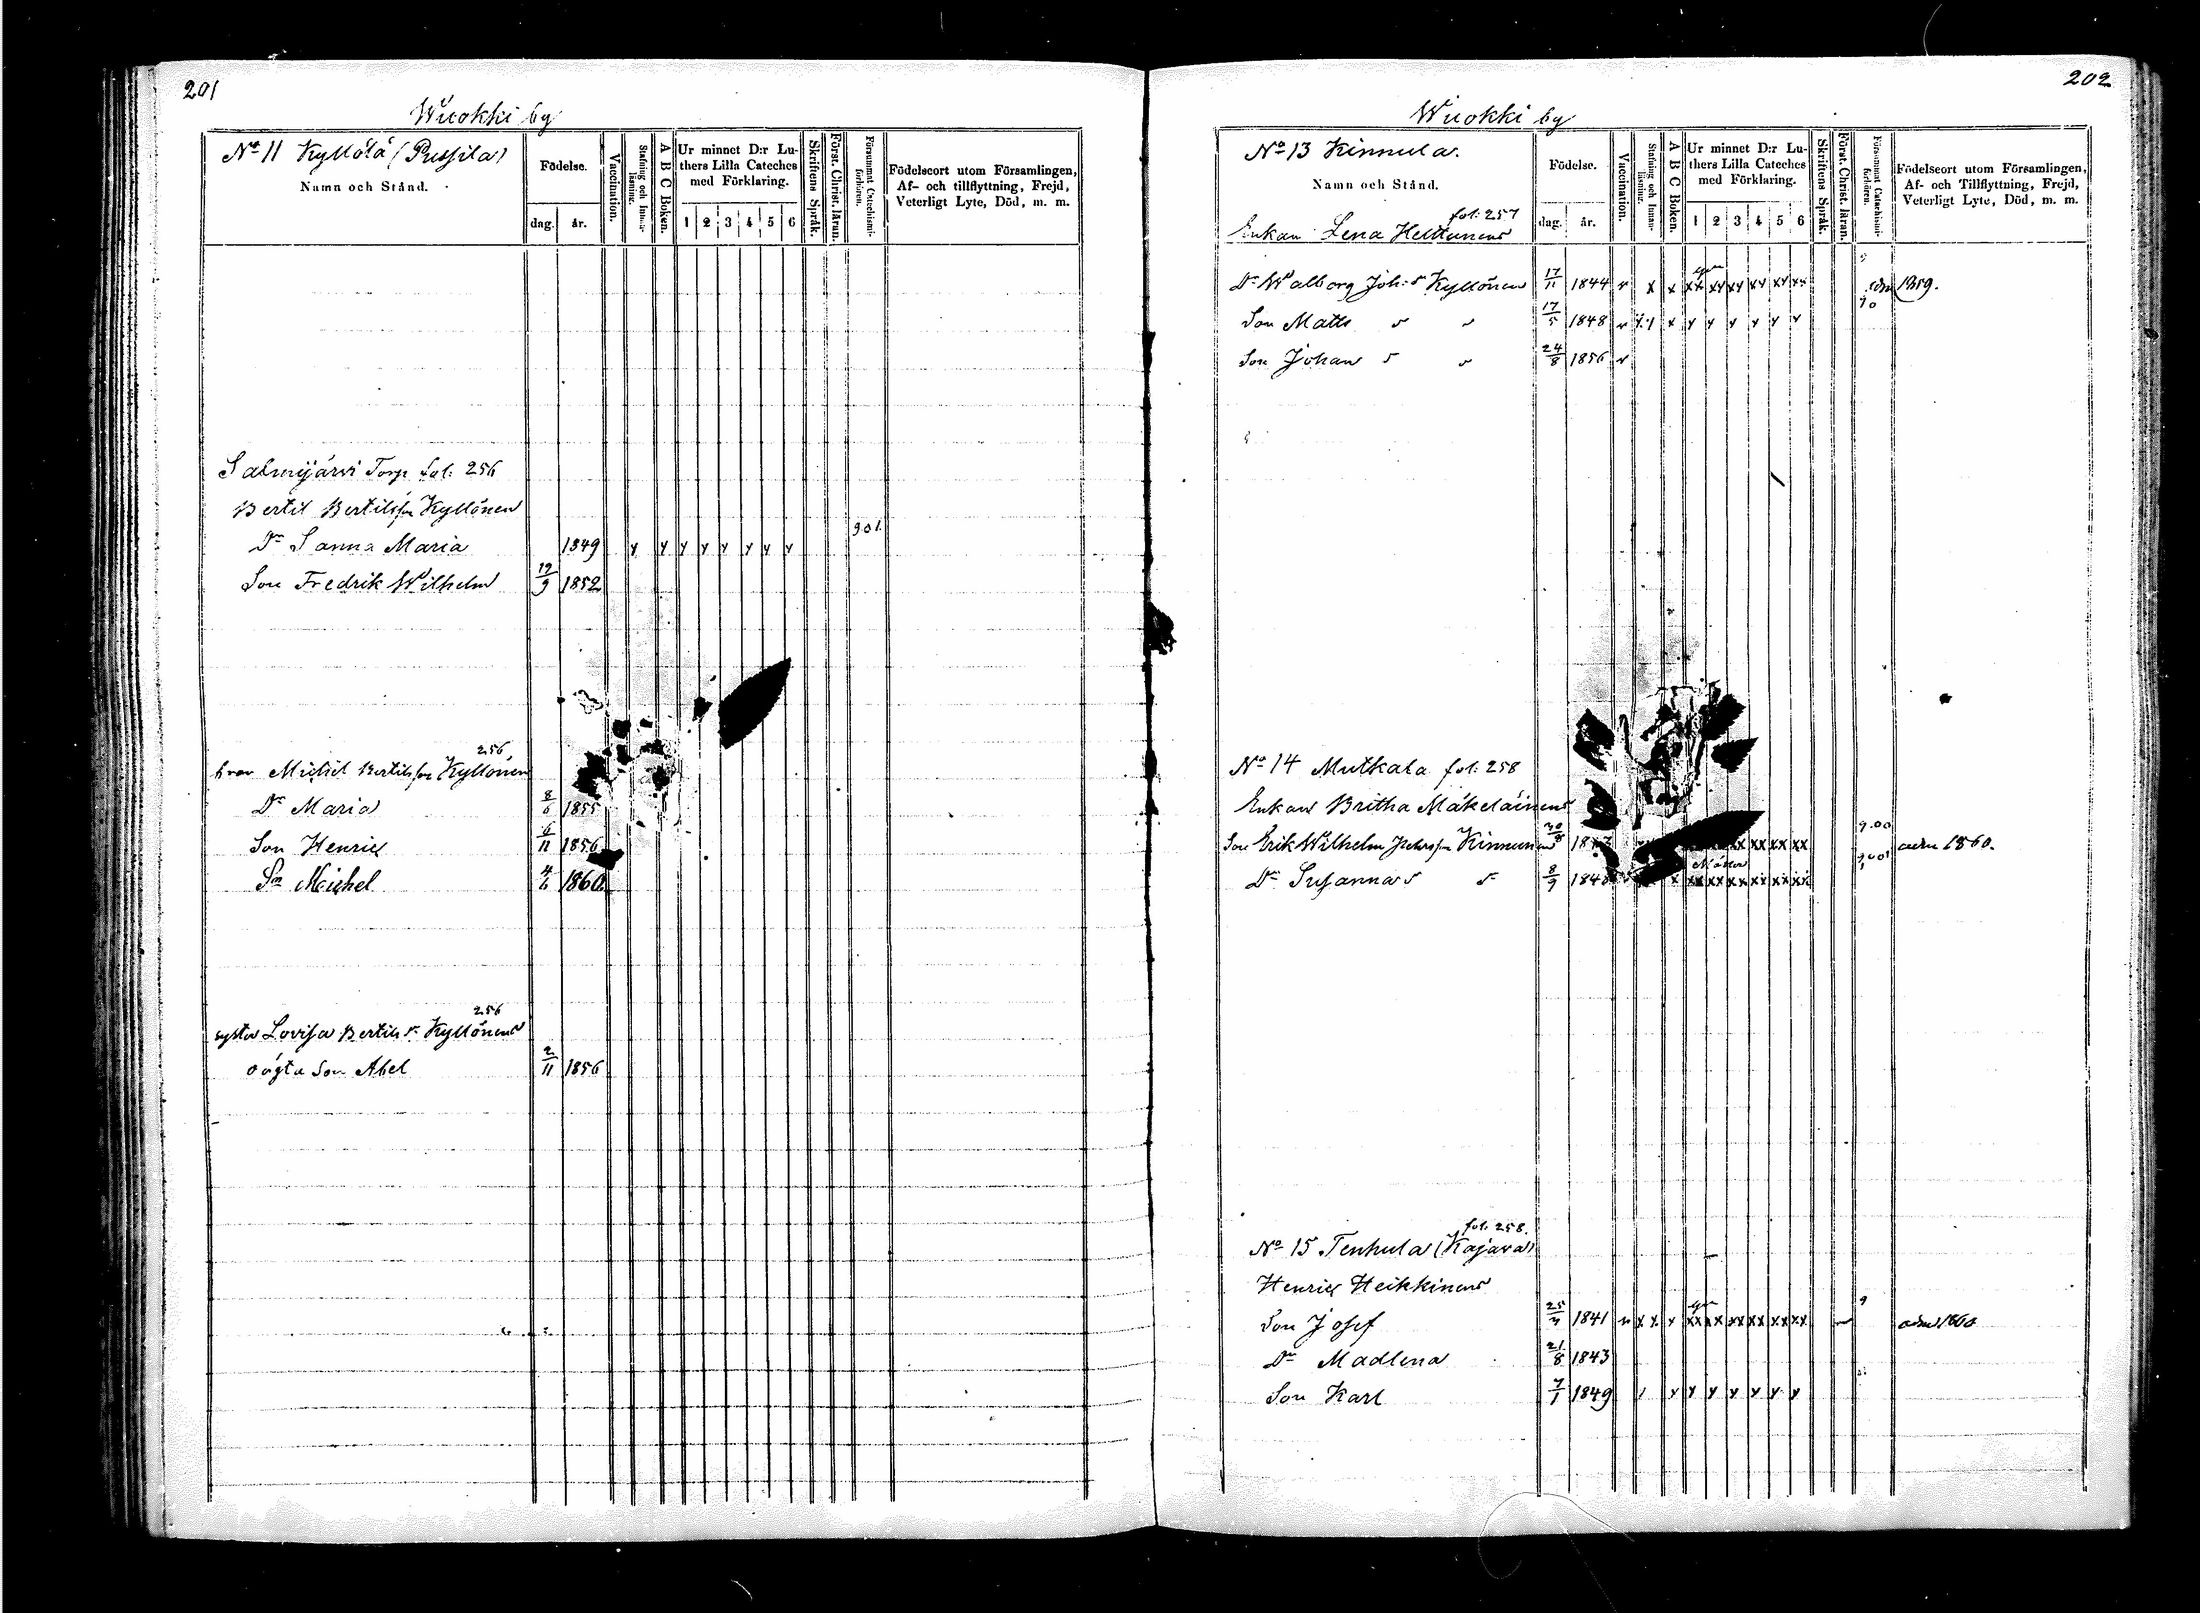 201
Wuokki by
No 11 Kyllölä (Pussila)
Namn och Stånd.
Födelse.
dag. år.
Vaccination.
Stafning och Innanläsning.
A B C Boken.
Ur minnet D:r Luthers Lilla Cateches med Förklaring.
1 2 3 4 5 6
Skriftens Språk.
Först. Christ. läran.
Försummat Catechismiförhören.
Födelseort utom Församlingen, Af- och tillflyttning, Frejd, Veterligt Lyte, Död, m. m.
Salmijärvi Torp fol: 256
Bertil Bertilsson Kyllönen
Dr Sanna Maria 1849 y y y y y y y y
Son Fredrik Wilhelm 1852
256
bror Michel Bertilsson Kyllönen
Dr Maria 8/6 1855
Son Henric 6/11 1856
Sn Michel 4/6 1860
256
syster Lovisa Bertils dr Kyllönens
oägta Son Abel 2/11 1856
202
Wuokki by
No 13 Kinnula.
Namn och Stånd.
Födelse.
dag. år.
Vaccination.
Stafning och Innanläsning.
A B C Boken.
Ur minnet D:r Luthers Lilla Cateches med Förklaring.
1 2 3 4 5 6
Skriftens Språk.
Först. Christ. läran.
Försummat Catechismiförhören.
Födelseort utom Församlingen, Af- och Tillflyttning, Frejd, Veterligt Lyte, Död, m. m.
fol: 257
Enkan Lena Heltunens
Dr Walborg Joh: dr Kyllönen 17/11 1844 v x x xx xx xx xx xx xx adm 1859.
Son Matts 17/5 1848 v x y y y y y y
Son Johan 24/8 1856 v
No 14 Mutkala fol: 258
Enkan Britha Mäkeläinens
Son Erik Wilhelm Kinnunen xx xx xx xx adm 1860.
Dr Susanna 8/9 1848 x xx xx xx xx xx xx
fol: 258.
No 15 Tenhula (Kajava)
Henric Heikkinens
Son Josef 1841 v x x x xx xx xx xx xx xx adm 1860
Dr Madlena 21/8 1843
Son Karl 7/1 1849 y y y y y y y